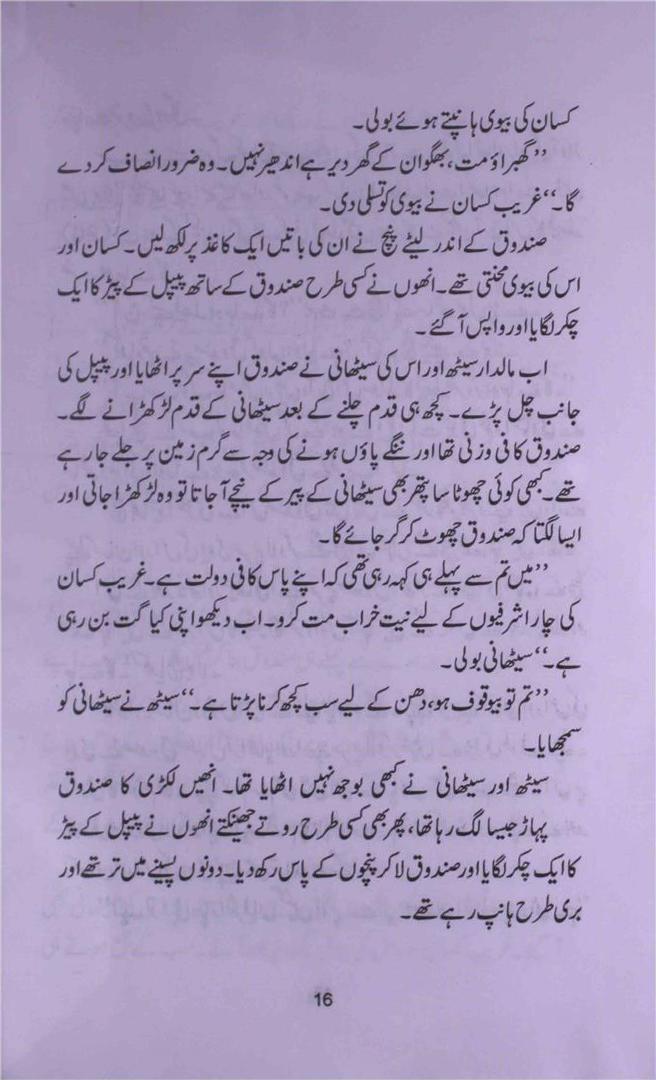 کسان کی بیوی ہانپتے ہوئے بولی۔
”گھبراؤ مت، بھگوان کے گھر دیر ہے اندھیر نہیں۔ وہ ضرور انصاف کر دے
گا۔“ غریب کسان نے بیوی کو تسلی دی۔
صندوق کے اندر لیٹے پنچ نے ان کی باتیں ایک کاغذ پر لکھ لیں۔ کسان اور
اس کی بیوی محنتی تھے۔ انھوں نے کسی طرح صندوق کے ساتھ پیپل کے پیڑ کا ایک
چکر لگایا اور واپس آ گئے۔
اب مالدار سیٹھ اور اس کی سیٹھانی نے صندوق اپنے سر پر اٹھایا اور پیپل کی
جانب چل پڑے۔ کچھ ہی قدم چلنے کے بعد سیٹھانی کے قدم لڑکھڑانے لگے۔
صندوق کافی وزنی تھا اور ننگے پاؤں ہونے کی وجہ سے گرم زمین پر جلے جا رہے
تھے۔ کبھی کوئی چھوٹا سا پتھر بھی سیٹھانی کے پیر کے نیچے آ جاتا تو وہ لڑکھڑا جاتی اور
ایسا لگتا کہ صندوق چھوٹ کر گر جائے گا۔
”میں تم سے پہلے ہی کہہ رہی تھی کہ اپنے پاس کافی دولت ہے۔ غریب کسان
کی چار اشرفیوں کے لیے نیت خراب مت کرو۔ اب دیکھو اپنی کیا گت بن رہی
ہے۔“ سیٹھانی بولی۔
”تم تو بیوقوف ہو، دھن کے لیے سب کچھ کرنا پڑتا ہے۔“ سیٹھ نے سیٹھانی کو
سمجھایا۔
سیٹھ اور سیٹھانی نے کبھی بوجھ نہیں اٹھایا تھا۔ انھیں لکڑی کا صندوق
پہاڑ جیسا لگ رہا تھا، پھر بھی کسی طرح روتے جھینکتے انھوں نے پیپل کے پیڑ
کا ایک چکر لگایا اور صندوق لا کر پنچوں کے پاس رکھ دیا۔ دونوں پسینے میں تر تھے اور
بری طرح ہانپ رہے تھے۔
16